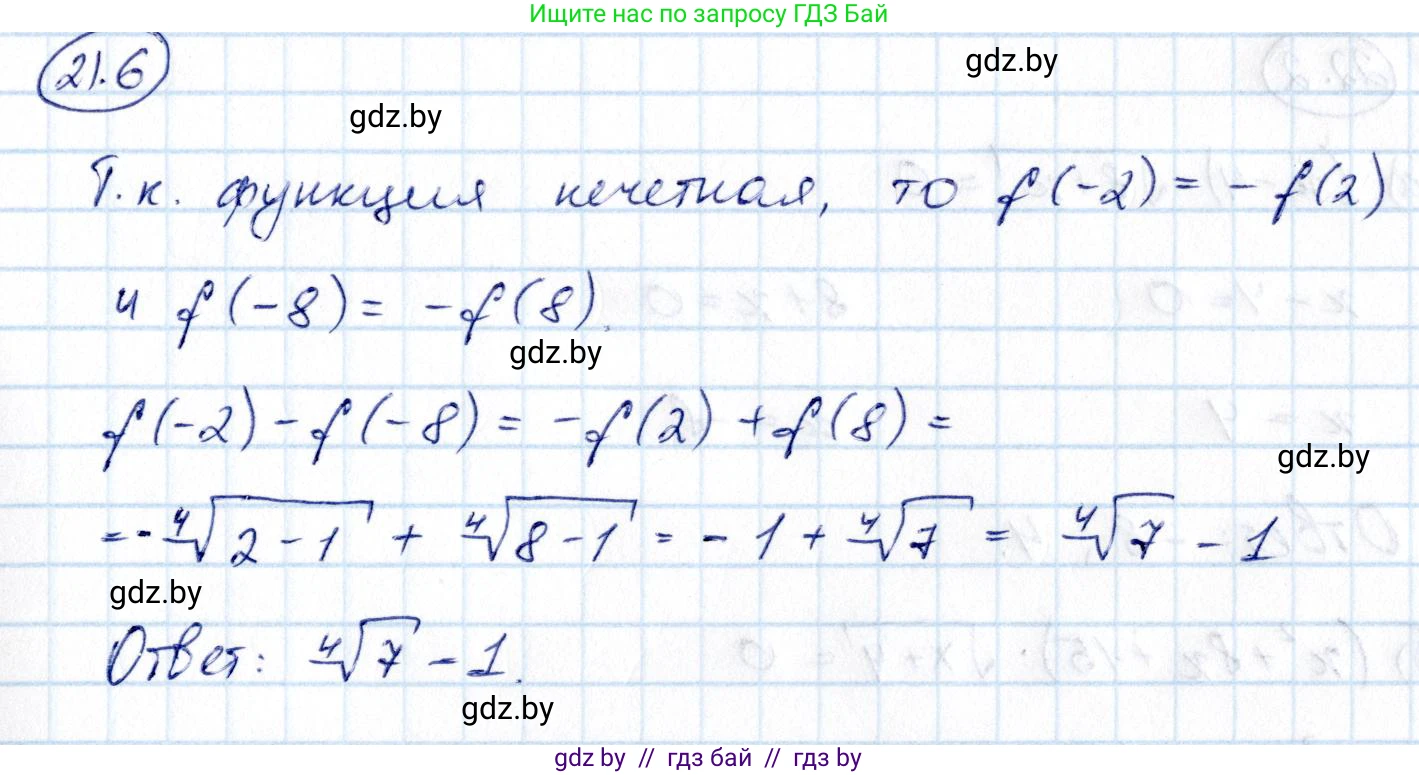 Ищите нас по запросу ГДЗ Бай
21.6
gdz.by
gdz.by
Т.к. функция нечетная, то f(-2) = - f(2)
и f(-8) = -f(8).
gdz.by
f(-2) - f(-8) = -f(2) + f(8) =
gdz.by
= - ⁴√(2-1) + ⁴√(8-1) = - 1 + ⁴√7 = ⁴√7 - 1
gdz.by
Ответ: ⁴√7 - 1.
gdz.by
gdz by // гдз бай // гдз by